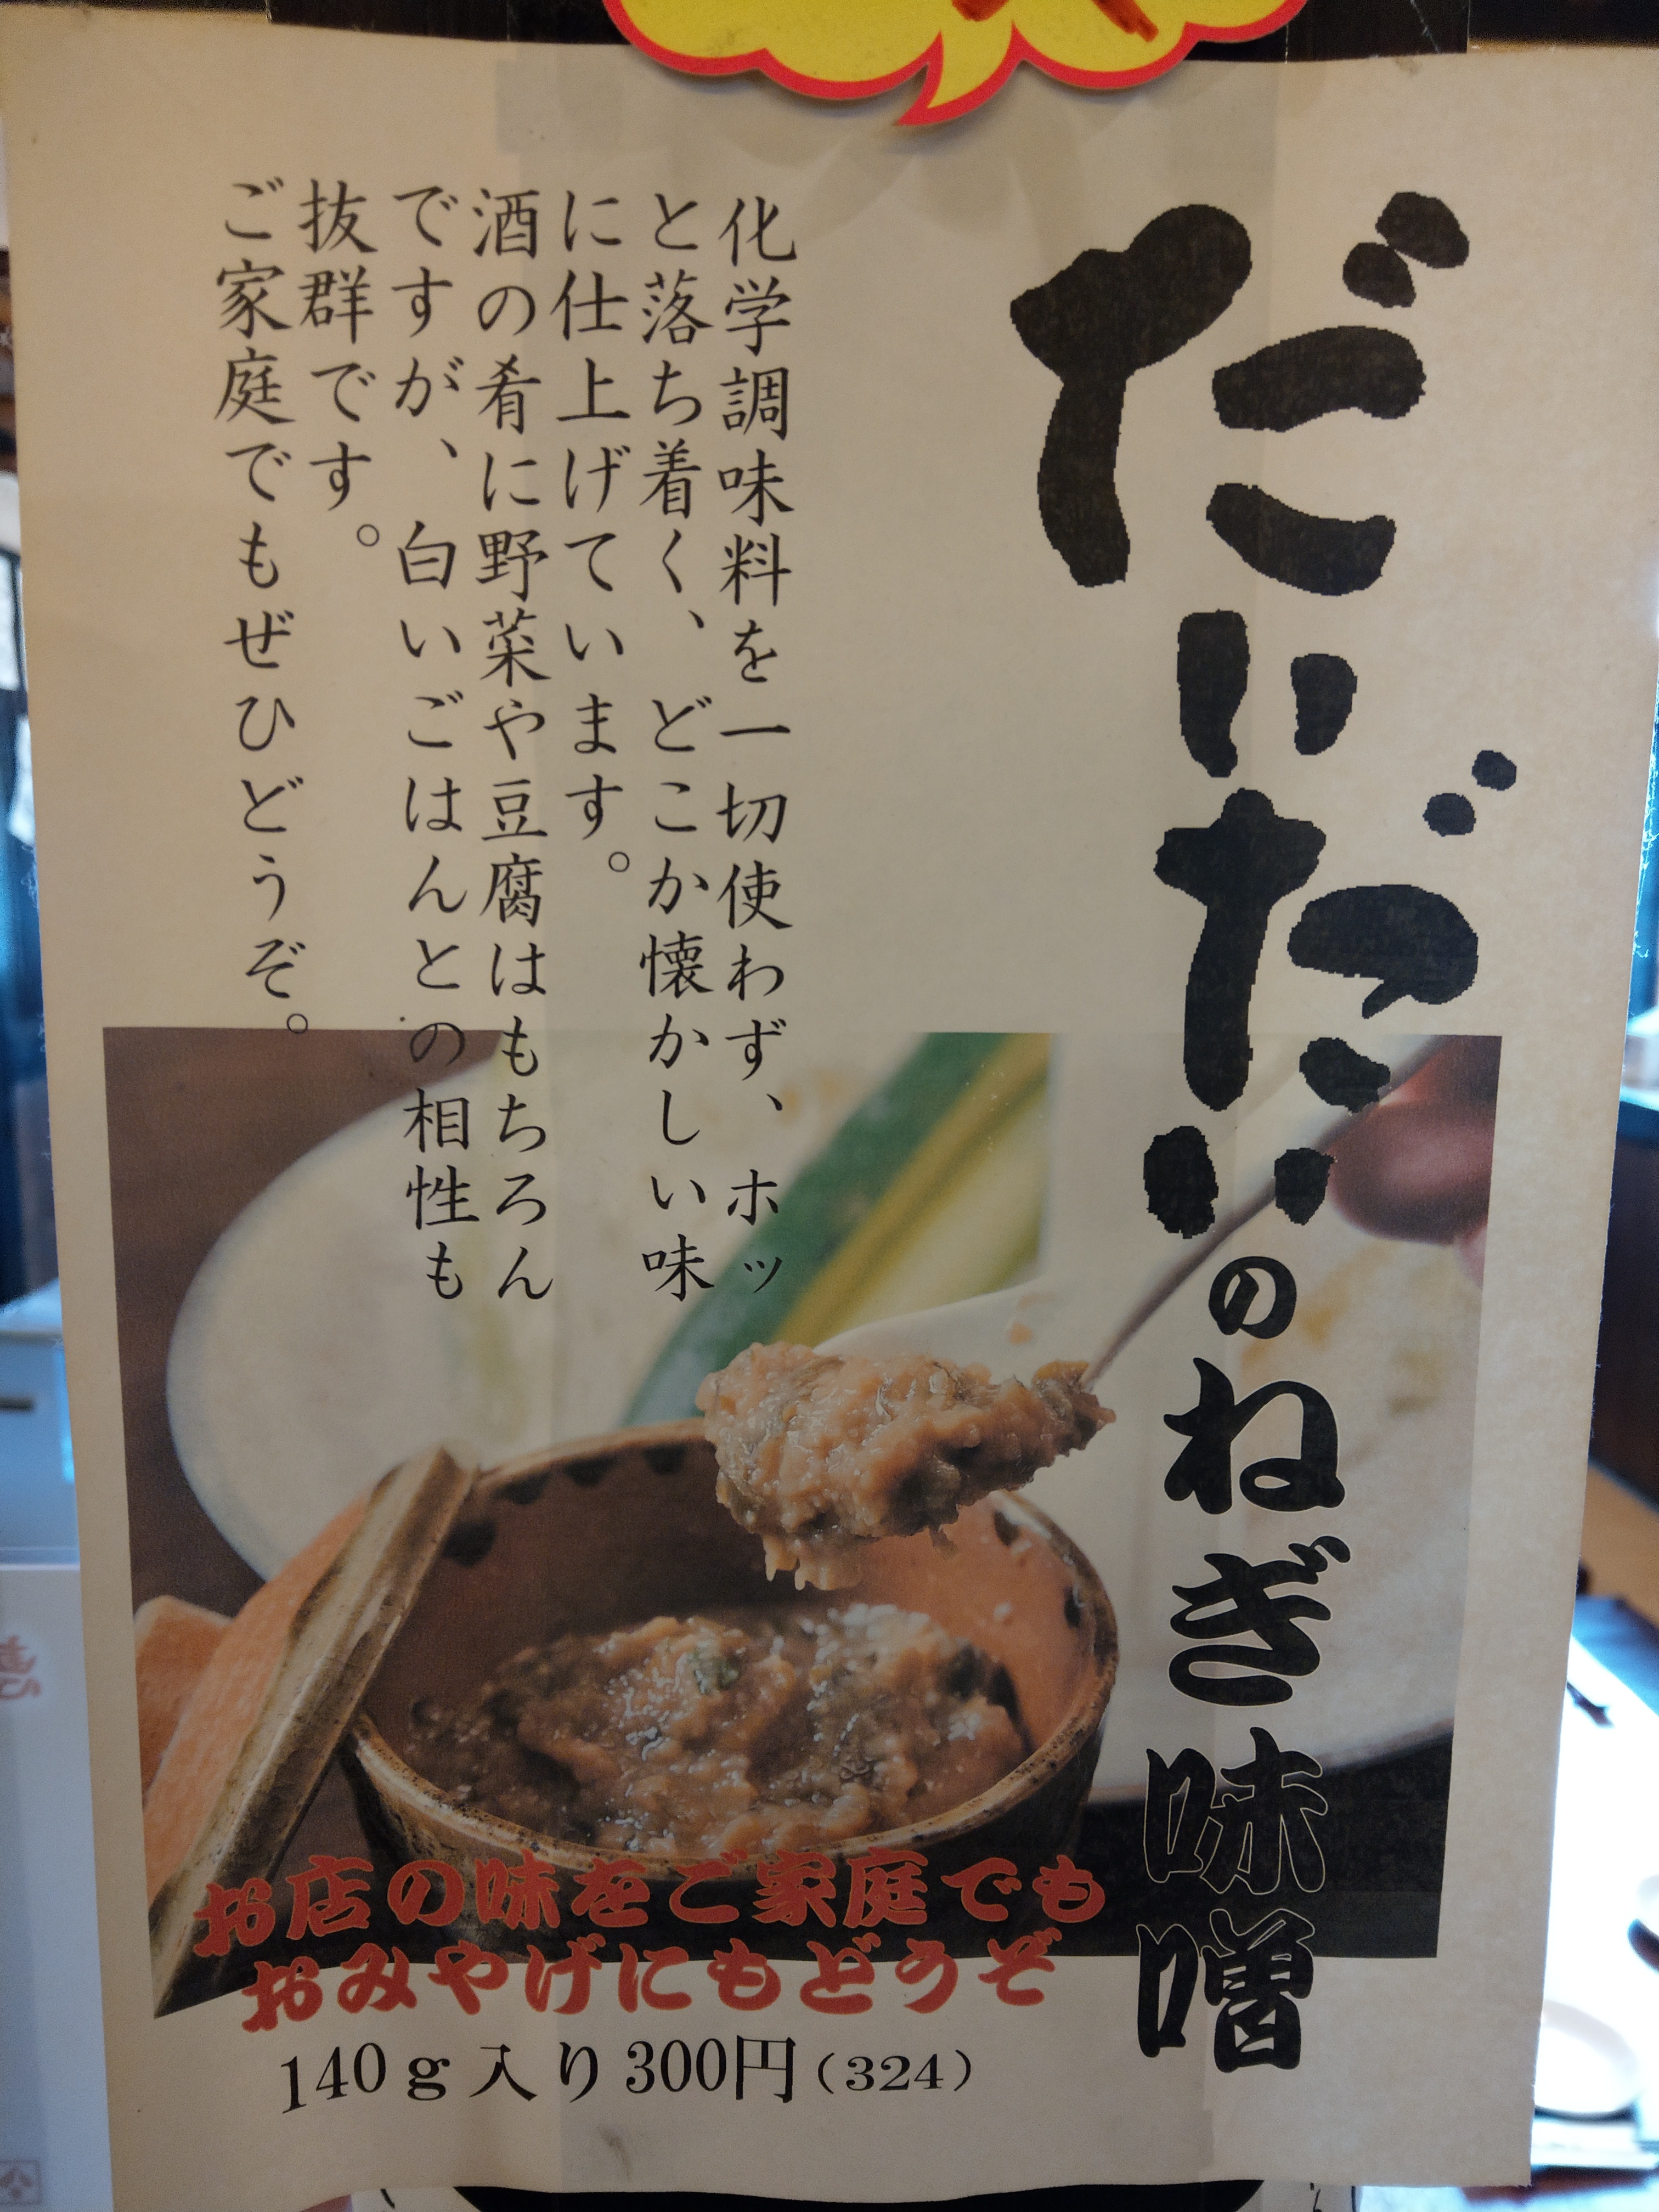 だいだいのねぎ味噌
化学調味料を一切使わず、ホッ
と落ち着く、どこか懐かしい味
に仕上げています。
酒の肴に野菜や豆腐はもちろん
ですが、白いごはんとの相性も
抜群です。
ご家庭でもぜひどうぞ。
お店の味をご家庭でも
おみやげにもどうぞ
140g入り300円(324)